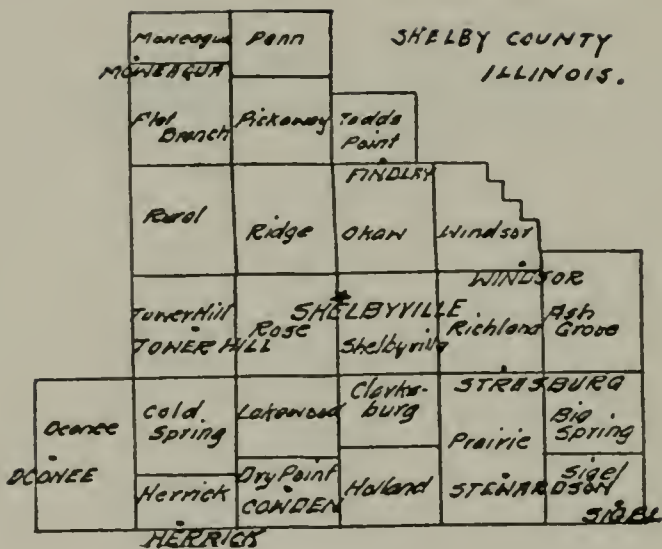 SHELBY COUNTY
ILLINOIS.
Moweaqua Penn
MOWEAQUA
Flat Branch
Pickaway
Todds Point
FINDLEY
Rural
Ridge
Okaw
Windsor
WINDSOR
Tower Hill
TOWER HILL
Rose
SHELBYVILLE
Shelbyville
Richland
Ash Grove
STRASBURG
Oconee
OCONEE
Cold Spring
Lakewood
Clarks-
burg
Prairie
Big Spring
Herrick
HERRICK
Dry Point
COWDEN
Holland
STEWARDSON
Sigel
SIGEL